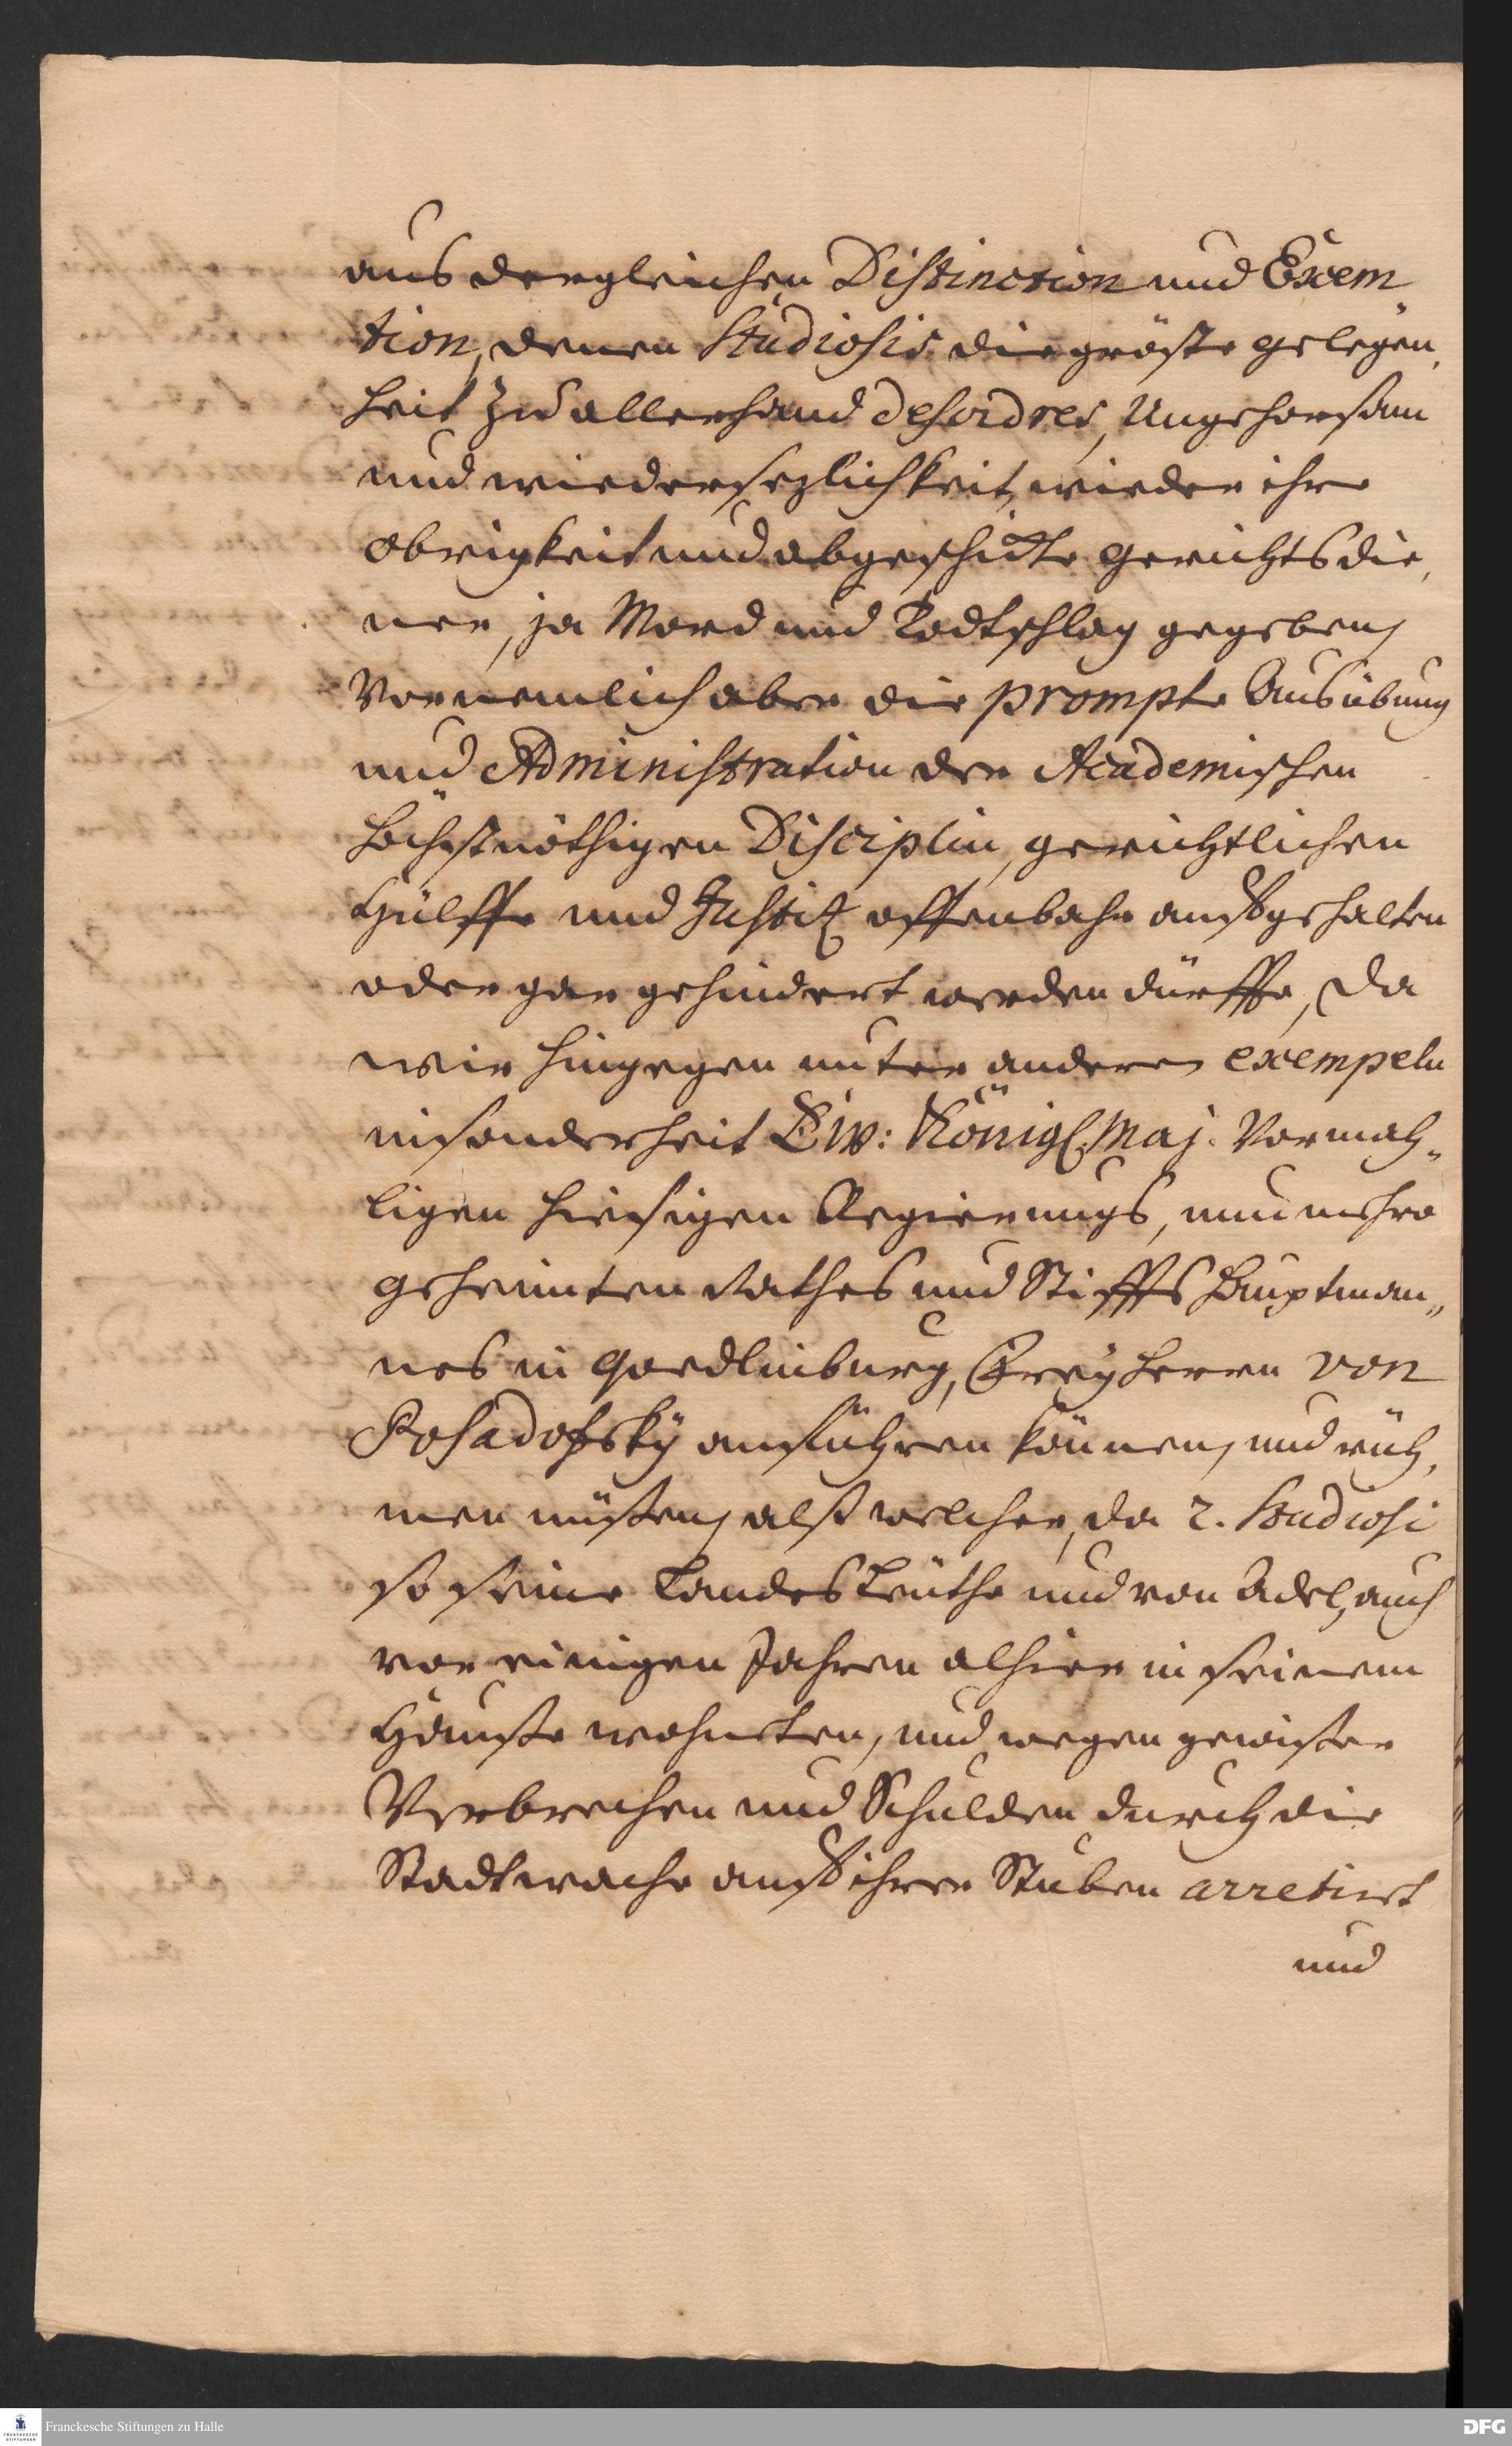 aus dergleichen Distinction und Exem-
tion, denen Studiosis die gröste gelegen-
heit zu allerhand desordres, Ungehorsam
und wiedersezlichkeit, wieder ihre
obrigkeit und abgeschickte gerichtsdie-
ner, ja Mord und Todtschlag gegeben,
Vornemlich aber die prompte Ausübung
und Administration der Academischen
höchstnöthigen Disciplin, gerichtlichen
Hülffe und Justiz offenbahr aufgehalten
oder gar gehindert werden dürffe, da
wir hingegen unter andern exempeln
insonderheit Ew: Königl. Maj. Vormah-
ligen hiesigen Regierungs, nunmehro
geheimten Rathes und Stiffts Hauptman-
nes in Qvedlinburg, Freyherrn von
Posadofsky anführen können, und rüh-
men müßen, alß welcher, da 2. Studiosi
so seine Landes Leuthe und von Adel, auch
vor einigen Jahren alhier in seinem
Hauße wohneten, und wegen gewißer
Verbrechen und Schulden durch die
Stadtwache auß ihrer Stuben arretirt
und
Franckesche Stiftungen zu Halle
DFG